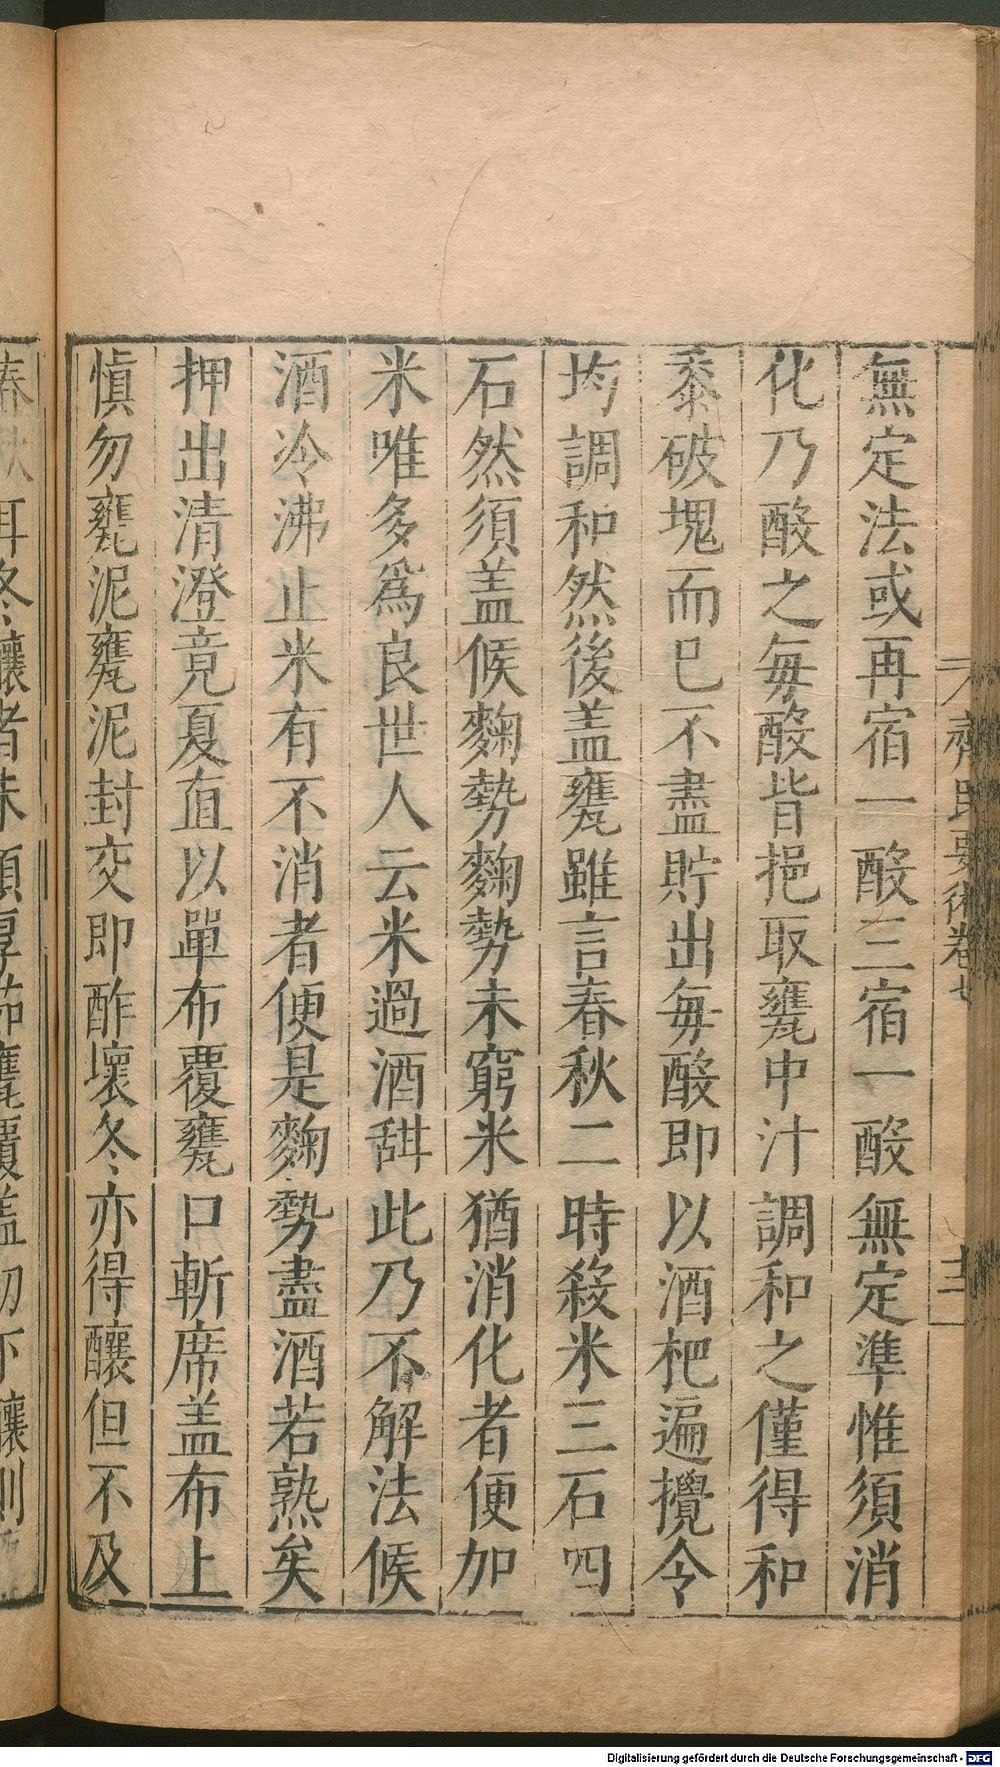 無定法或再宿一酘三宿一酘無定準惟須消
化乃酘之每酘皆挹取甕中汁調和之僅得和
黍破塊而已不盡貯出每酘即以酒杷遍攪令
均調和然後盖甕雖言春秋二時殺米三石四
石然須盖候麴勢麴勢未窮米猶消化者便加
米唯多爲良世人云米過酒甜此乃不解法候
酒冷沸止米有不消者便是麴勢盡酒若熟矣
押出清澄竟夏直以單布覆甕口斬席盖布上
慎勿甕泥甕泥封交即酢壞冬亦得釀但不及
齊民要術卷七
十二
Digitalisierung gefördert durch die Deutsche Forschungsgemeinschaft - DFG